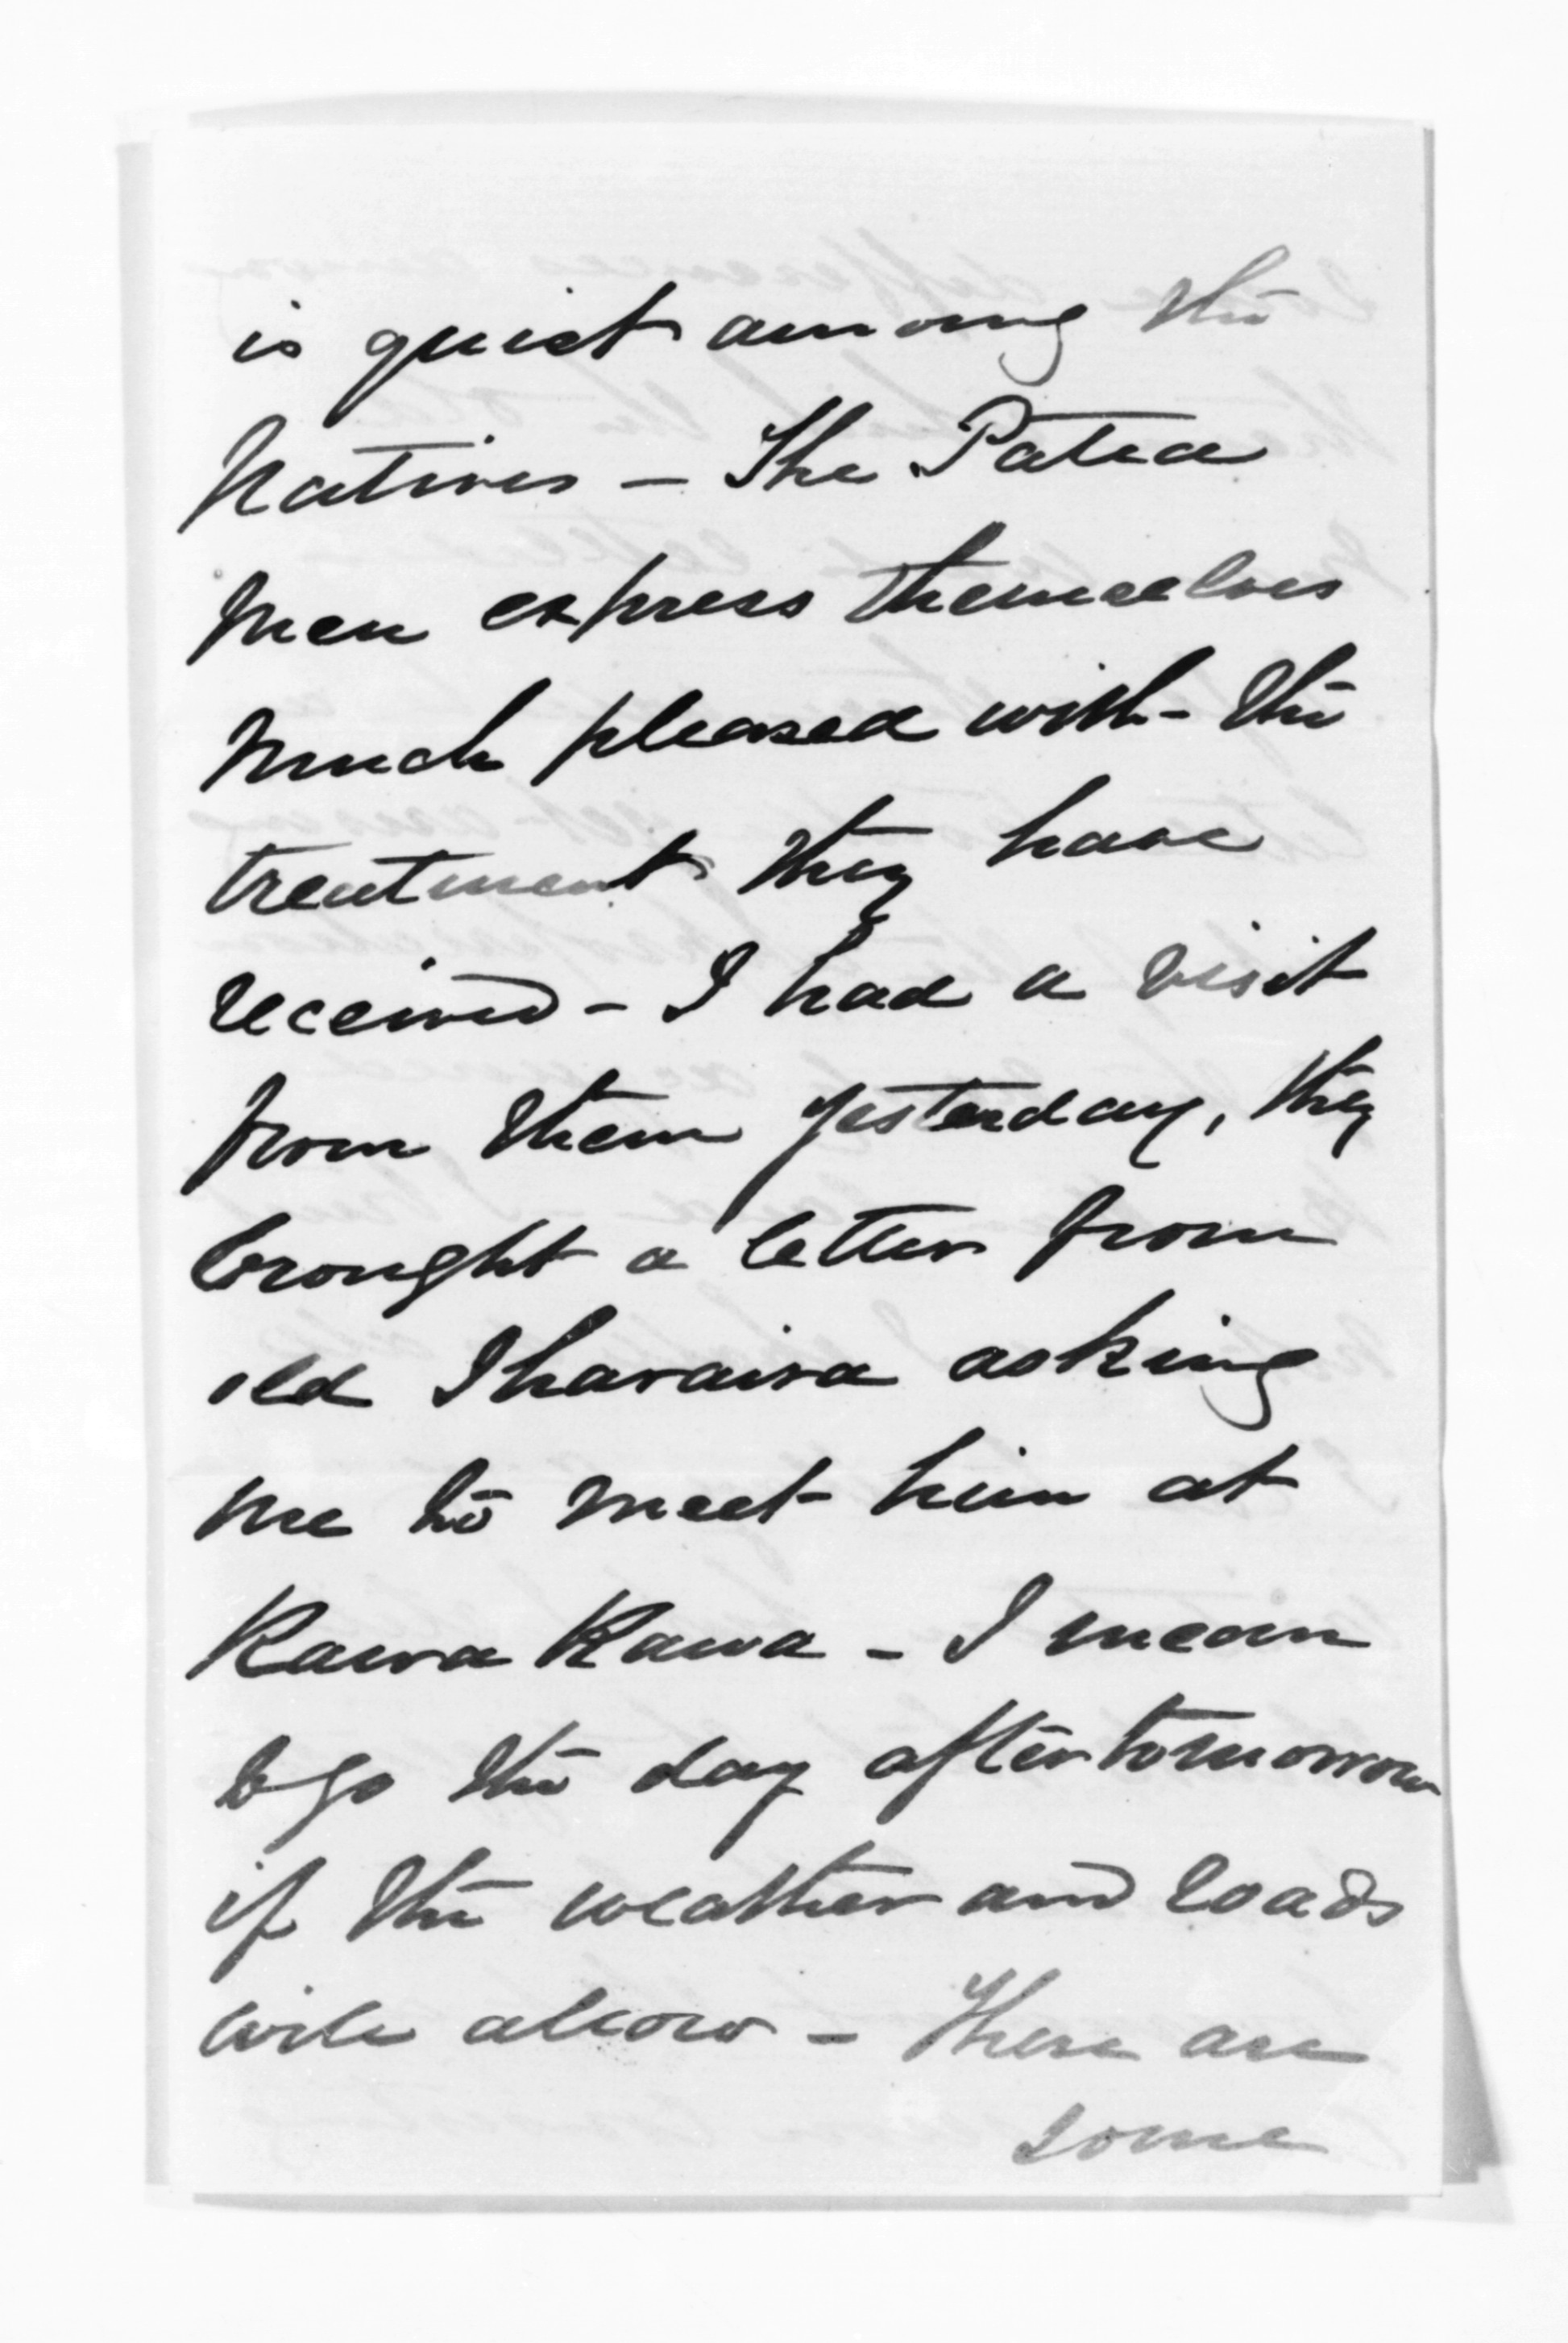 is quiet among the
Natives – The Patea
men express themselves
much pleased with the
treatment they have
received – I had a visit
from them yesterday, they
brought a letter from
old Iharaira asking
me to meet him at
Kawa Kawa – I mean
to go the day after tomorrow
if the weather and roads
will allow – There are
some